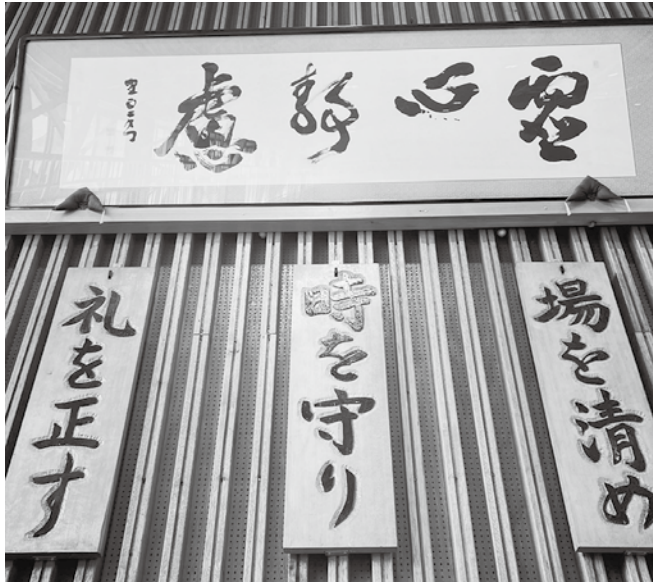 虚心静慮
場を清め
時を守り
礼を正す